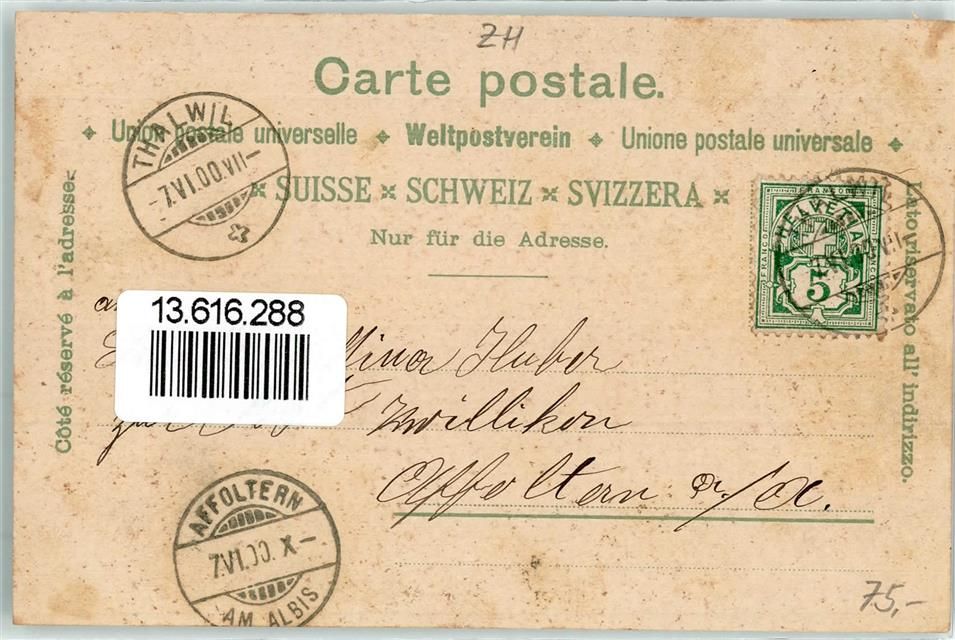 ZH
Carte postale.
Union postale universelle Weltpostverein Unione postale universale
SUISSE SCHWEIZ SVIZZERA
Nur für die Adresse.
Côté réservé à l'adresse.
Lato riservato all' indirizzo.
THALWIL
7.VI.00.VII–
FRANCO
HELVETIA
FRANCO
FRANCO
5
13.616.288
Huber
Zwillikon
Affoltern a/A.
AFFOLTERN
7.VI.00. X–
AM ALBIS
75,-